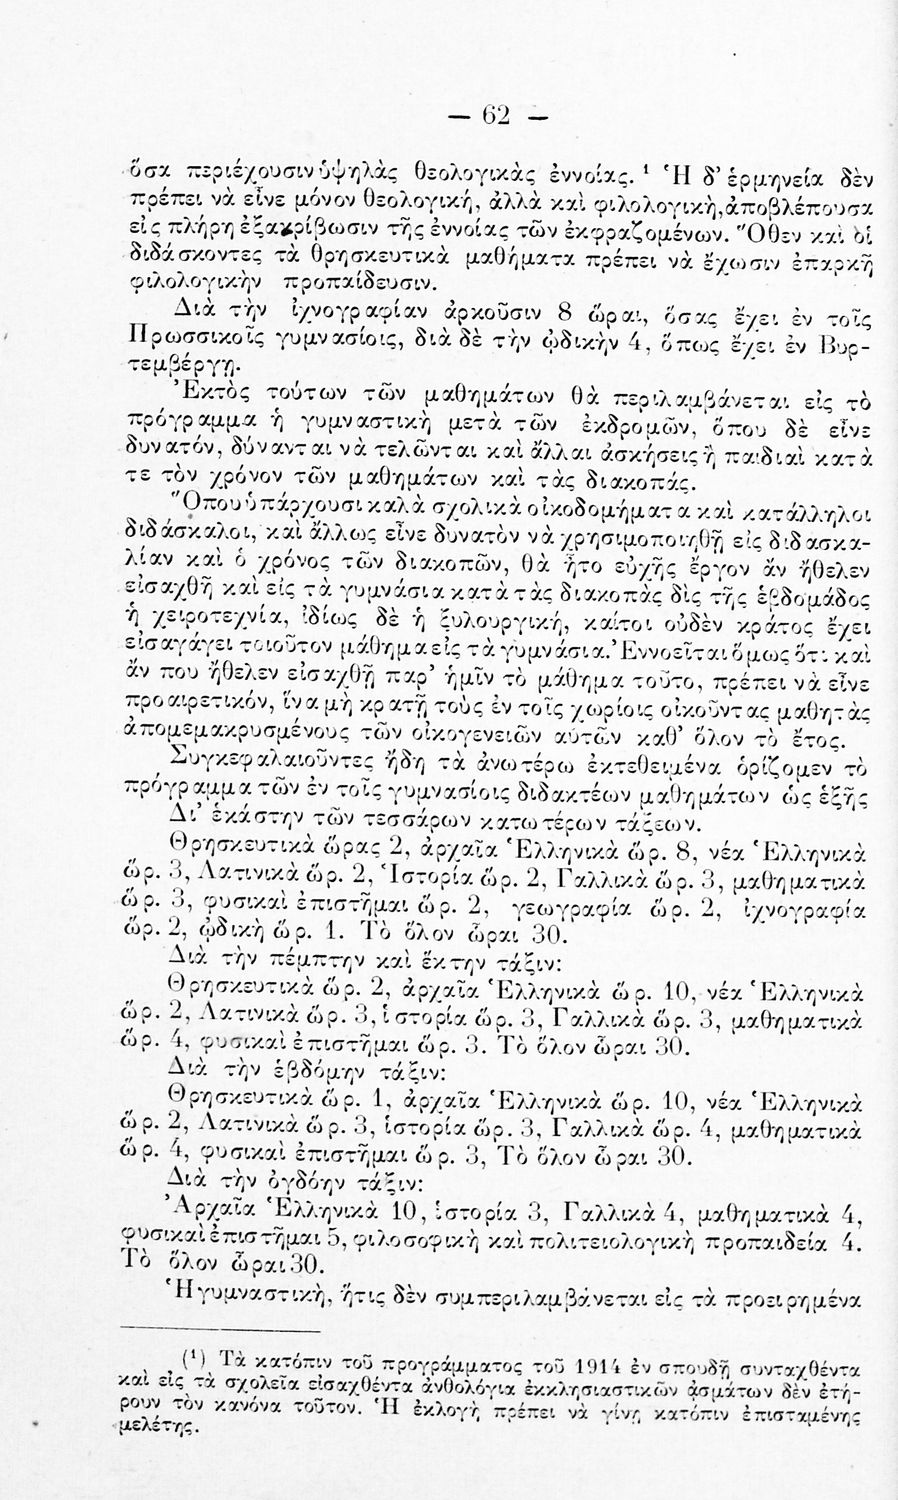 — 62 —
ὅσα περιέχουσιν ὑψηλὰς θεολογικὰς ἐννοίας. ¹ Ἡ δ’ ἑρμηνεία δὲν
πρέπει νὰ εἶνε μόνον θεολογική, ἀλλὰ καὶ φιλολογική, ἀποβλέπουσα
εἰς πλήρη ἐξακρίβωσιν τῆς ἐννοίας τῶν ἐκφραζομένων. Ὅθεν καὶ οἱ
διδάσκοντες τὰ θρησκευτικὰ μαθήματα πρέπει νὰ ἔχωσιν ἐπαρκῆ
φιλολογικὴν προπαίδευσιν.
Διὰ τὴν ἰχνογραφίαν ἀρκοῦσιν 8 ὧραι, ὅσας ἔχει ἐν τοῖς
Πρωσσικοῖς γυμνασίοις, διὰ δὲ τὴν ᾠδικὴν 4, ὅπως ἔχει ἐν Βυρ-
τεμβέργῃ.
Ἐκτὸς τούτων τῶν μαθημάτων θὰ περιλαμβάνεται εἰς τὸ
πρόγραμμα ἡ γυμναστικὴ μετὰ τῶν ἐκδρομῶν, ὅπου δὲ εἶνε
δυνατόν, δύνανται νὰ τελῶνται καὶ ἄλλαι ἀσκήσεις ἢ παιδιαὶ κατὰ
τε τὸν χρόνον τῶν μαθημάτων καὶ τὰς διακοπάς.
Ὅπου ὑπάρχουσι καλὰ σχολικὰ οἰκοδομήματα καὶ κατάλληλοι
διδάσκαλοι, καὶ ἄλλως εἶνε δυνατὸν νὰ χρησιμοποιηθῇ εἰς διδασκα-
λίαν καὶ ὁ χρόνος τῶν διακοπῶν, θὰ ἦτο εὐχῆς ἔργον ἂν ἤθελεν
εἰσαχθῆ καὶ εἰς τὰ γυμνάσια κατὰ τὰς διακοπὰς δὶς τῆς ἑβδομάδος
ἡ χειροτεχνία, ἰδίως δὲ ἡ ξυλουργική, καίτοι οὐδὲν κράτος ἔχει
εἰσαγάγει τοιοῦτον μάθημα εἰς τὰ γυμνάσια. Ἐννοεῖται ὅμως ὅτι καὶ
ἄν που ἤθελεν εἰσαχθῆ παρ’ ἡμῖν τὸ μάθημα τοῦτο, πρέπει νὰ εἶνε
προαιρετικόν, ἵνα μὴ κρατῇ τοὺς ἐν τοῖς χωρίοις οἰκοῦντας μαθητὰς
ἀπομεμακρυσμένους τῶν οἰκογενειῶν αὐτῶν καθ’ ὅλον τὸ ἔτος.
Συγκεφαλαιοῦντες ἤδη τὰ ἀνωτέρω ἐκτεθειμένα ὁρίζομεν τὸ
πρόγραμμα τῶν ἐν τοῖς γυμνασίοις διδακτέων μαθημάτων ὡς ἑξῆς
Δι’ ἑκάστην τῶν τεσσάρων κατωτέρων τάξεων.
Θρησκευτικὰ ὥρας 2, ἀρχαῖα Ἑλληνικὰ ὥρ. 8, νέα Ἑλληνικὰ
ὥρ. 3, Λατινικὰ ὥρ. 2, Ἱστορία ὥρ. 2, Γαλλικὰ ὥρ. 3, μαθηματικὰ
ὥρ. 3, φυσικαὶ ἐπιστῆμαι ὥρ. 2, γεωγραφία ὥρ. 2, ἰχνογραφία
ὥρ. 2, ᾠδικὴ ὥρ. 1. Τὸ ὅλον ὧραι 30.
Διὰ τὴν πέμπτην καὶ ἕκτην τάξιν:
Θρησκευτικὰ ὥρ. 2, ἀρχαῖα Ἑλληνικὰ ὥρ. 10, νέα Ἑλληνικὰ
ὥρ. 2, Λατινικὰ ὥρ. 3, ἱστορία ὥρ. 3, Γαλλικὰ ὥρ. 3, μαθηματικὰ
ὥρ. 4, φυσικαὶ ἐπιστῆμαι ὥρ. 3. Τὸ ὅλον ὧραι 30.
Διὰ τὴν ἑβδόμην τάξιν:
Θρησκευτικὰ ὥρ. 1, ἀρχαῖα Ἑλληνικὰ ὥρ. 10, νέα Ἑλληνικὰ
ὥρ. 2, Λατινικὰ ὥρ. 3, ἱστορία ὥρ. 3, Γαλλικὰ ὥρ. 4, μαθηματικὰ
ὥρ. 4, φυσικαὶ ἐπιστῆμαι ὥρ. 3, Τὸ ὅλον ὧραι 30.
Διὰ τὴν ὀγδόην τάξιν:
Ἀρχαῖα Ἑλληνικὰ 10, ἱστορία 3, Γαλλικὰ 4, μαθηματικὰ 4,
φυσικαὶ ἐπιστῆμαι 5, φιλοσοφικὴ καὶ πολιτειολογικὴ προπαιδεία 4.
Τὸ ὅλον ὧραι 30.
Ἡ γυμναστικὴ, ἥτις δὲν συμπεριλαμβάνεται εἰς τὰ προειρημένα
(¹) Τὰ κατόπιν τοῦ προγράμματος τοῦ 1914 ἐν σπουδῇ συνταχθέντα
καὶ εἰς τὰ σχολεῖα εἰσαχθέντα ἀνθολόγια ἐκκλησιαστικῶν ᾀσμάτων δὲν ἐτή-
ρουν τὸν κανόνα τοῦτον. Ἡ ἐκλογὴ πρέπει νὰ γίνῃ κατόπιν ἐπισταμένης
μελέτης.